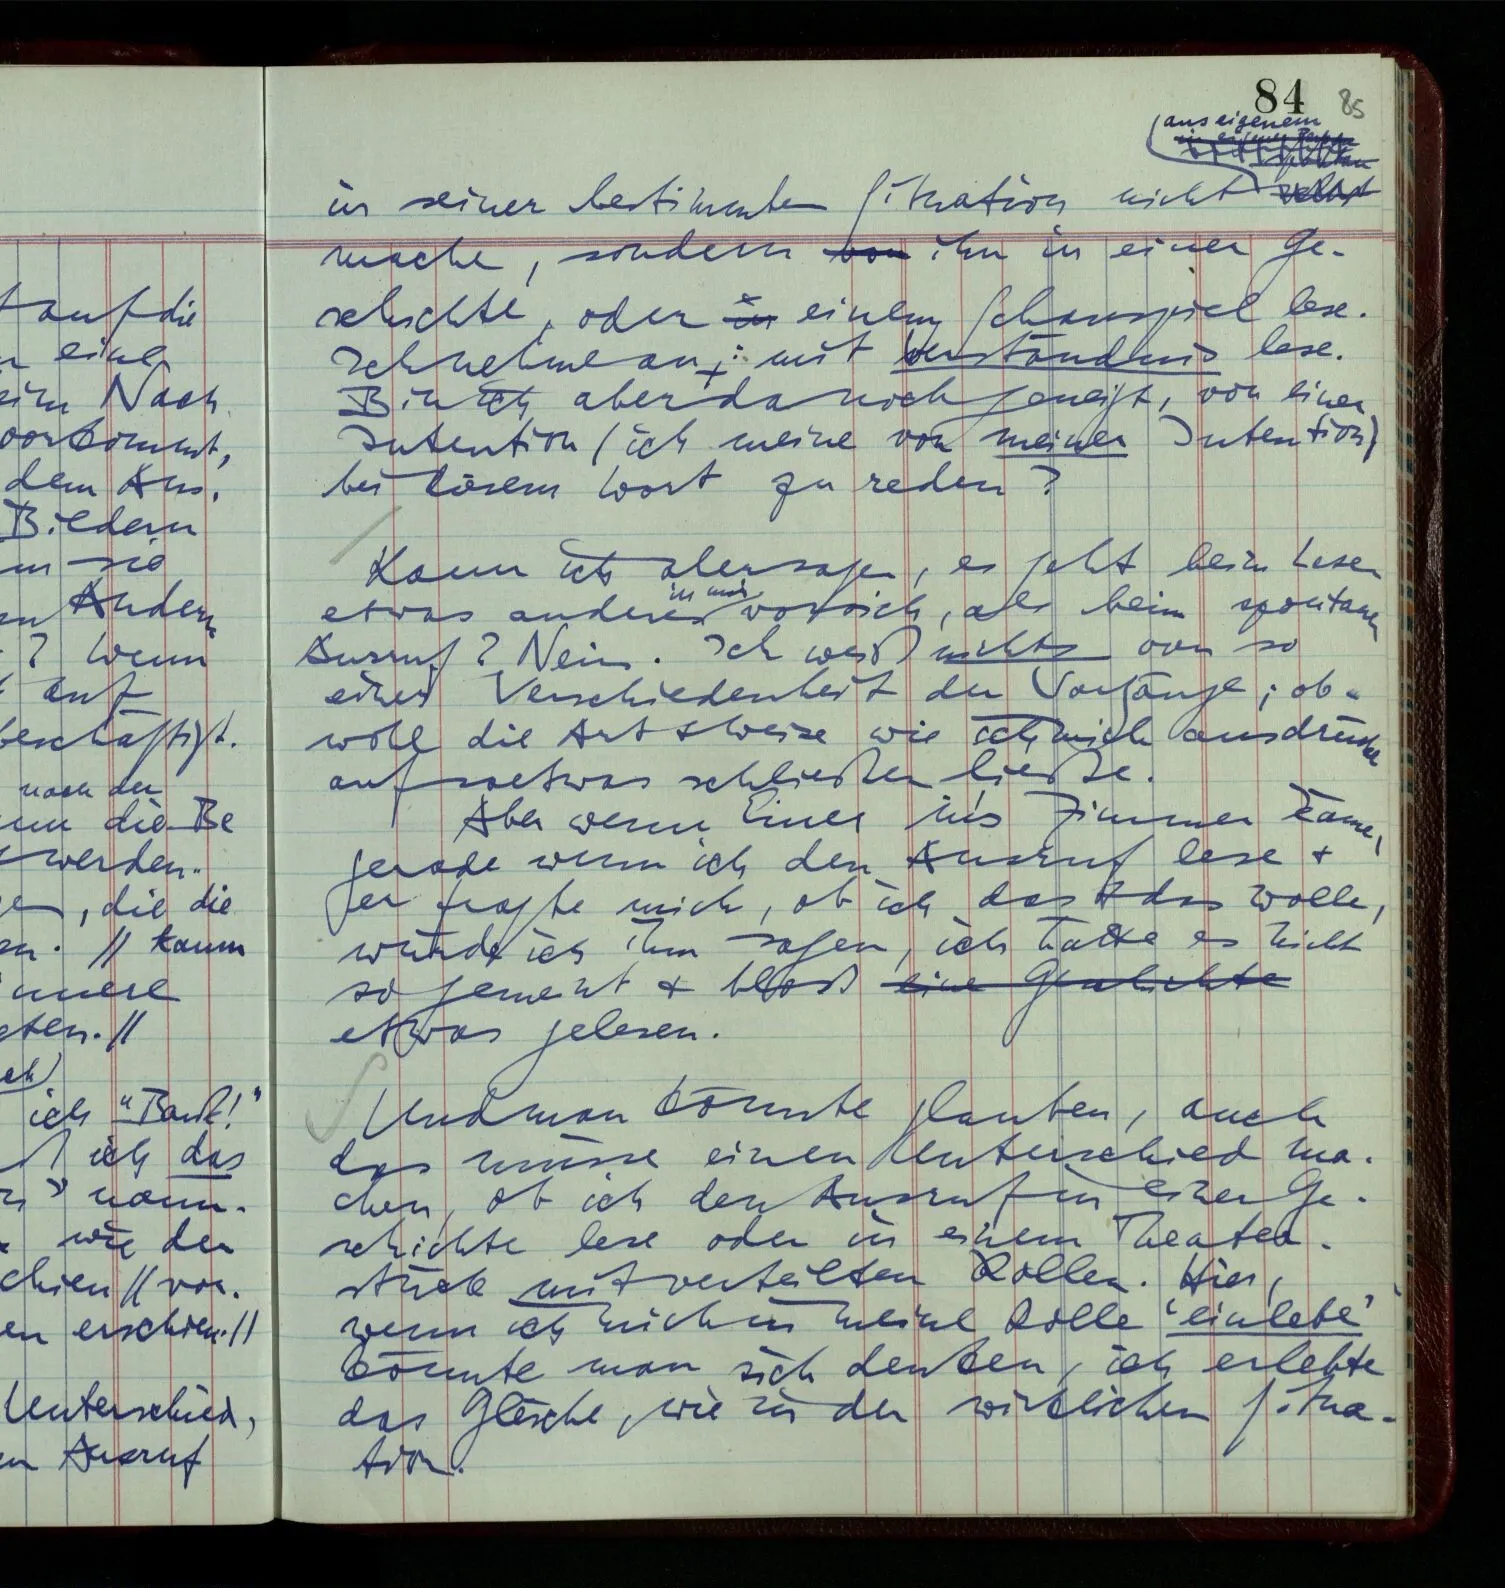 t auf die
eine
Nach
vorkommt,
dem Aus-
Bildern
sie
Andern
? Wenn
auf
beschäftigt.
nach der
die Be
werden.
, die die
. // kaum
innere
//
ich "Bank!"
ich das
nann-
wie der
// vor-
en erschien. //
Unterschied,
Ausruf
84 85
aus eigenem
in seiner bestimmten Situation nicht selbst
mache, sondern von ihn in einer Ge-
schichte, oder in einem Schauspiel lese.
Ich nehme an, : mit Verständnis lese.
Bin ich aber da noch geneigt, von einer
Intention (ich meine von meiner Intention)
bei diesem Wort zu reden?
Kann ich aber sagen, es geht beim Lesen
in mir
etwas anderes vor sich, als beim spontanen
Ausruf? Nein. Ich weiß nichts von so
einer Verschiedenheit der Vorgänge; ob-
wohl die Art & Weise wie ich mich ausdrücke
auf so etwas schließen ließe.
Aber wenn Einer in's Zimmer käme,
gerade wenn ich den Ausruf lese &
er fragte mich, ob ich das & das wolle,
würde ich ihm sagen, ich hätte es nicht
so gemeint & bloß eine Geschichte
etwas gelesen.
Und man könnte glauben, auch
das müsse einen Unterschied ma-
chen, ob ich den Ausruf in einer Ge-
schichte lese oder in einem Theater-
stück mit verteilten Rollen. Hier,
wenn ich mich in meine Rolle 'einlebe'
könnte man sich denken, ich erlebte
das Gleiche, wie in der wirklichen Situa-
tion.